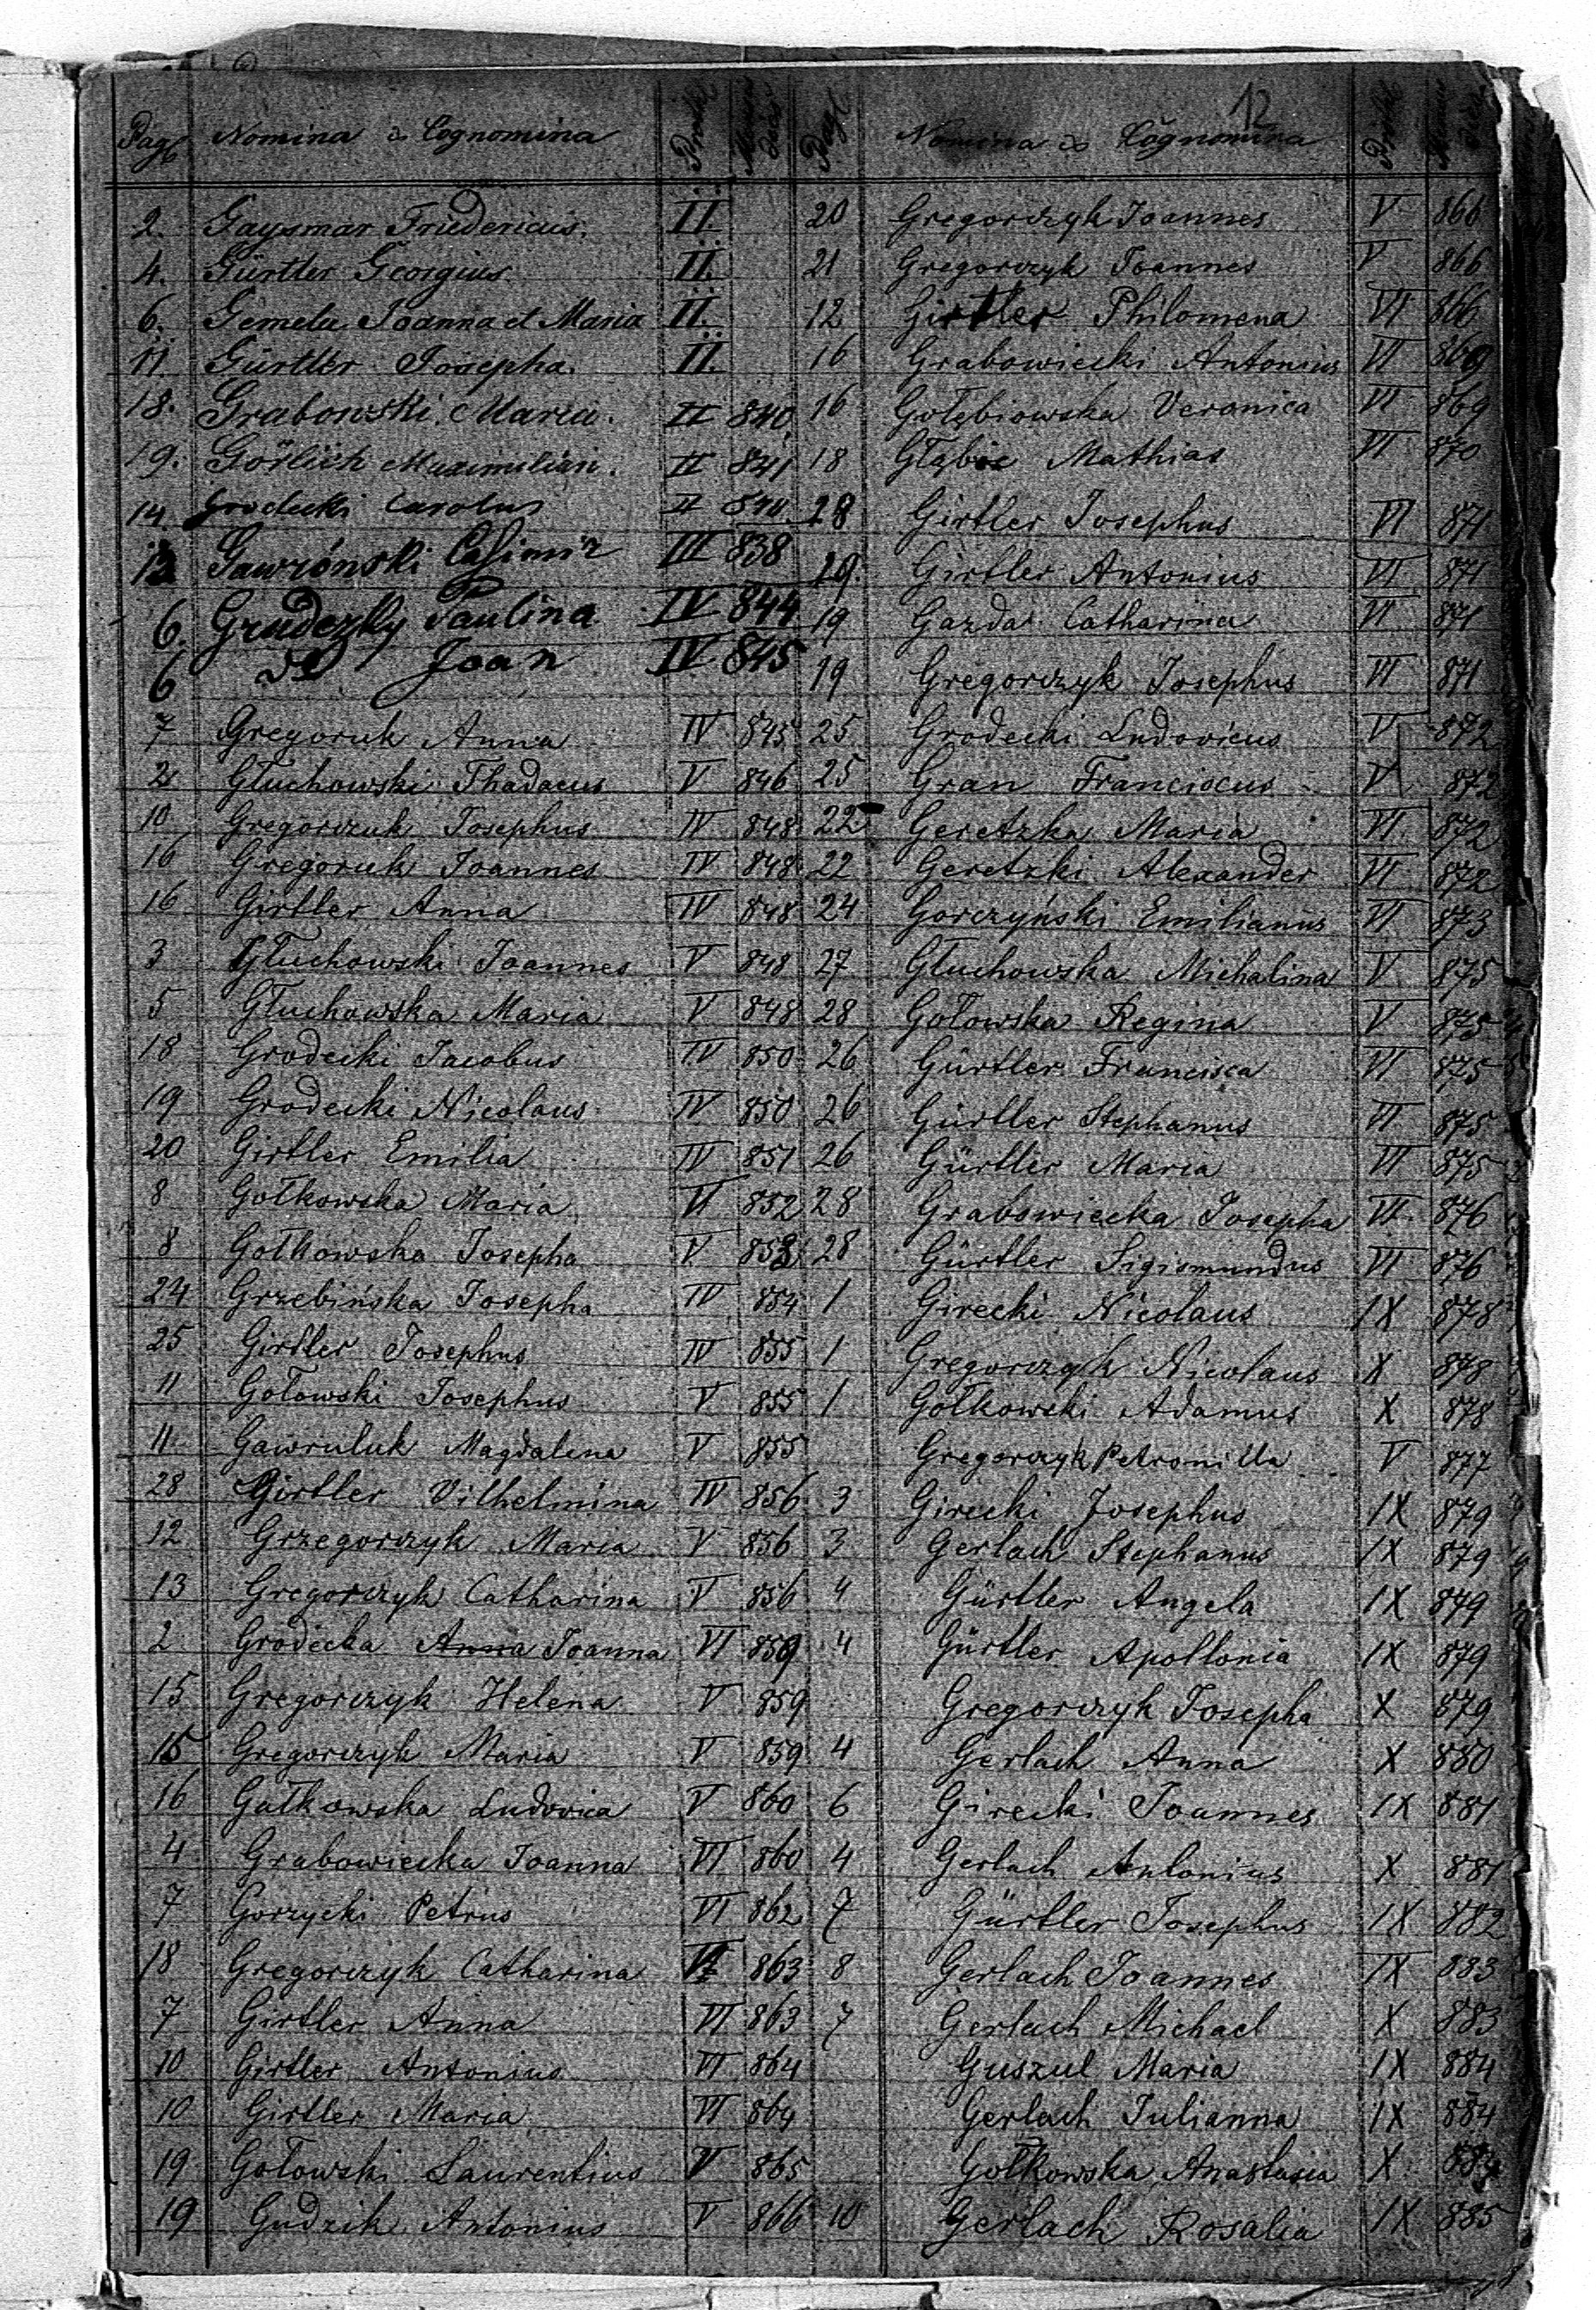 12
Pag. Nomina & Cognomina
2. Gaysmar Friedericus. II.
4. Gürtler Georgius II.
6. Gemela Joanna et Maria II.
11. Gürtler Josepha. II.
18. Grabowski Maria. II 840
19. Görlich Maximilian. II 841
14. Grodecki Carolus II 840
13 Gawroński Casimir III 838
6. Grudezky Paulina IV 844
6 do Joan IV 845
7 Gregoruk Anna IV 845
2 Głuchowski Thadaeus V 846
10 Gregorczuk Josephus IV 848
16 Gregoruk Joannes IV 848
16 Girtler Anna IV 848
3 Głuchowski Joannes V 848
5 Głuchowska Maria V 848
18 Grodecki Jacobus IV 850
19 Grodecki Nicolaus IV 850
20 Girtler Emilia IV 851
8 Gołkowska Maria VI 852
8 Gołkowska Josepha V 853
24 Grzebińska Josepha IV 854
25 Girtler Josephus IV 855
11 Gołowski Josephus V 855
11 Gawruluk Magdalena V 855
28 Girtler Vilhelmina IV 856
12 Grzegorczyk Maria V 856
13 Gregorczyk Catharina V 856
2 Grodecka Anna Joanna VI 859
15 Gregorczyk Helena V 859
15 Gregorczyk Maria V 859
16 Gałkowska Ludovica V 860
4 Grabowiecka Joanna VI 860
7 Gorzycki Petrus VI 862
18 Gregorczyk Catharina VI 863
7 Girtler Anna VI 863
10 Girtler Antonius VI 864
10 Girtler Maria VI 864
19 Gołowski Laurentius V 865
19 Gudzik Antonius V 866
Pag. Nomina & Cognomina
20 Gregorczyk Joannes V 866
21 Gregorczyk Joannes V 866
12 Girtler Philomena VI 866
16 Grabowiecki Antonius VI 869
16 Gołębiowska Veronica VI 869
18 Głąbie Mathias VI 870
28 Girtler Josephus VI 871
19. Girtler Antonius VI 871
19 Gazda Catharina VI 871
19 Gregorczyk Josephus VI 871
25 Grodecki Ludovicus V 872
25 Gran Franciscus V 872
22 Geretzka Maria VI 872
22 Geretzki Alexander VI 872
24 Gorczyński Emilianus VI 873
27 Głuchowska Michalina V 875
28 Gołowska Regina V 875
26 Gürtler Francisca VI 875
26 Gürtler Stephanus VI 875
26 Gürtler Maria VI 875
28 Grabowiecka Josepha VI 876
28 Gürtler Sigismundus VI 876
1 Girecki Nicolaus IX 878
1 Gregorczyk Nicolaus X 878
1 Gołkowski Adamus X 878
Gregorczyk Petronilla V 877
3 Girecki Josephus IX 879
3 Gerlach Stephanus IX 879
4 Gürtler Angela IX 879
4 Gürtler Apollonia IX 879
Gregorczyk Josepha X 879
4 Gerlach Anna X 880
6 Girecki Joannes IX 881
4 Gerlach Antonius X 881
7 Gürtler Josephus IX 882
8 Gerlach Joannes IX 883
7 Gerlach Michael X 883
Guszul Maria IX 884
Gerlach Julianna IX 884
Gołkowska Anastasia X 884
10 Gerlach Rosalia IX 885